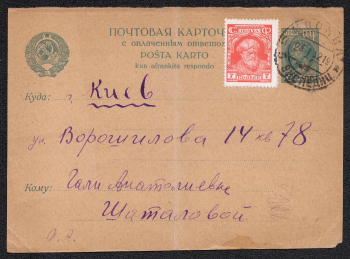 ПОЧТОВАЯ КАРТОЧКА
с оплаченным ответом
POŜTA KARTO
kun afrankita respondo
Куда: г. Киев
ул. Ворошилова 14 кв 78
Кому: Гали Анатолиевне
Шаталовой